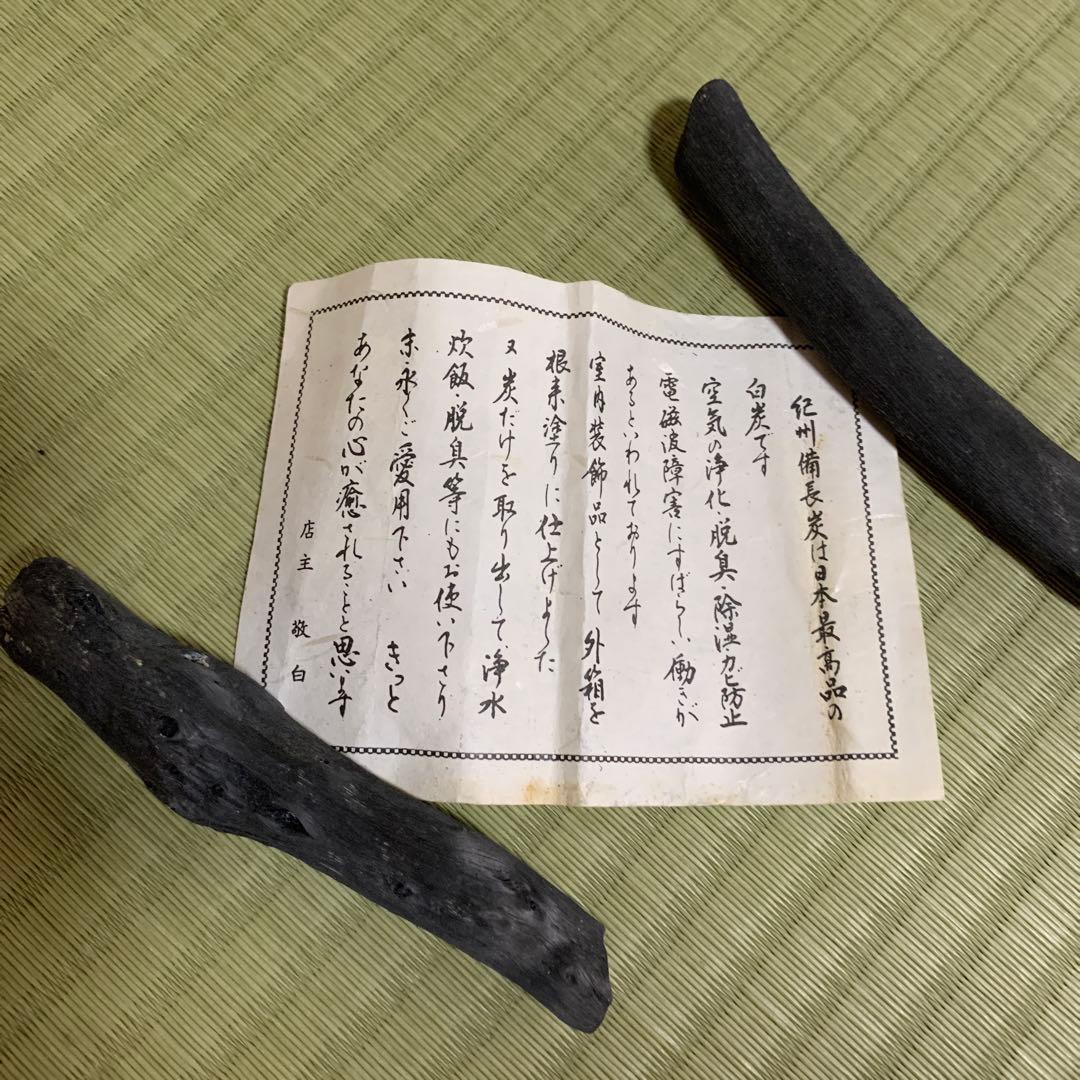 紀州備長炭は日本最高品の
白炭です
空気の浄化・脱臭・除湿カビ防止
電磁波障害にすばらしい働きが
あるといわれております
室内装飾品として 外箱を
根来塗りに仕上げました
又 炭だけを取り出して、浄水
炊飯・脱臭等にもお使い下さり
末永くご愛用下さい きっと
あなたの心が癒されることと思います
店主 敬白